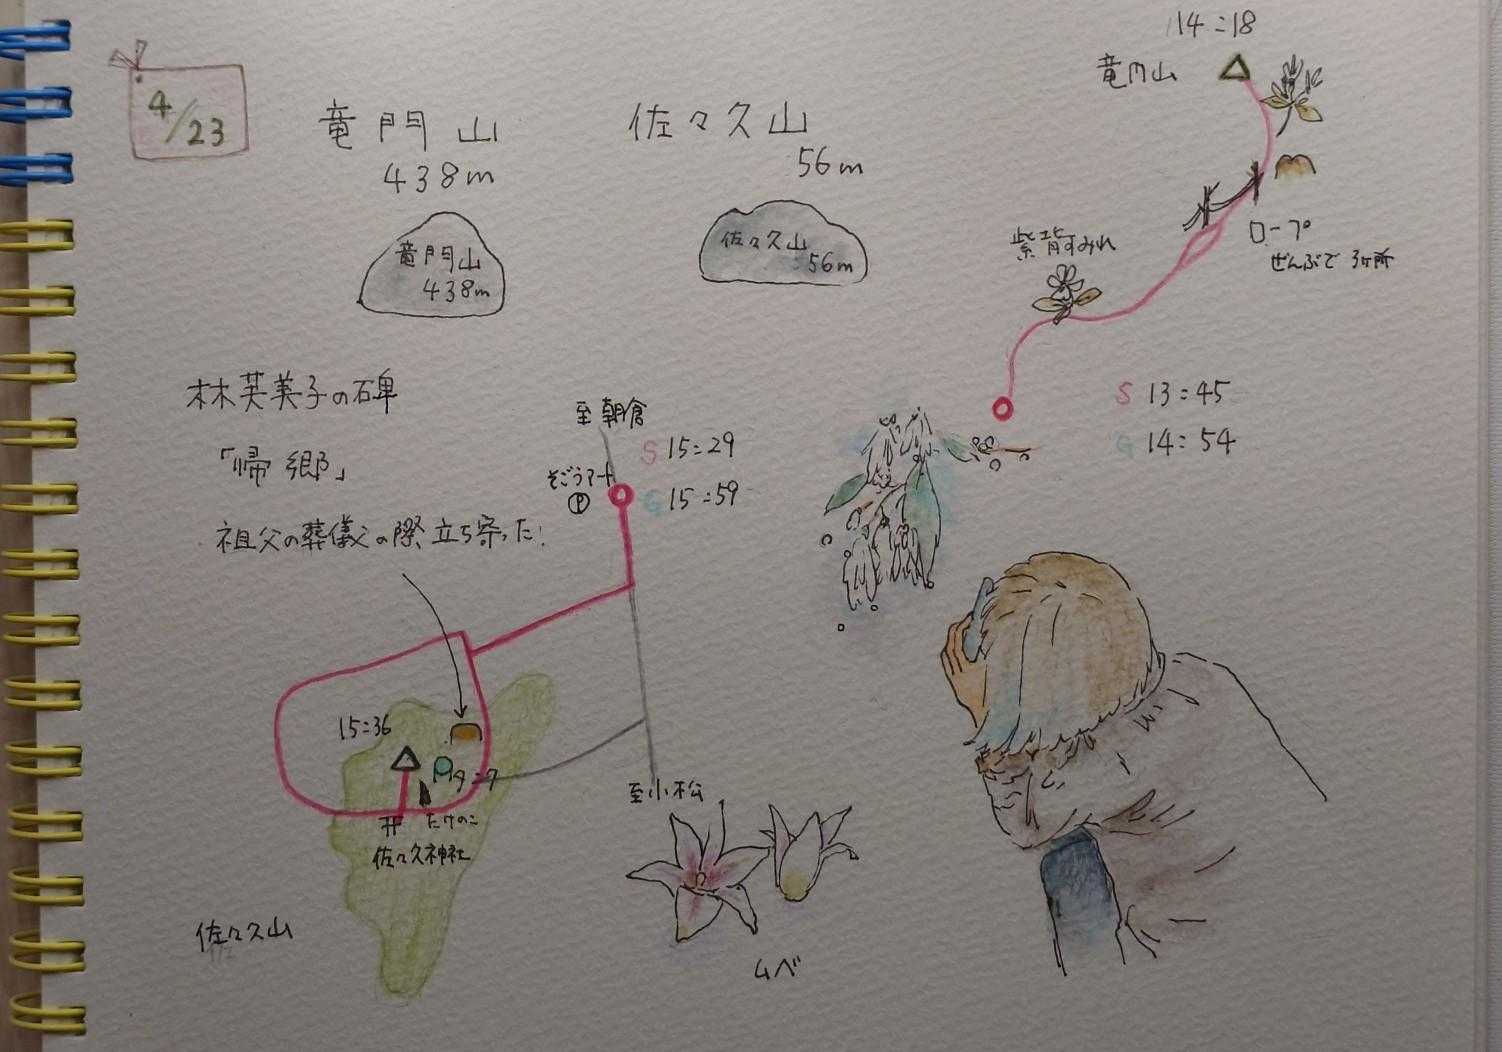 4/23
竜門山
438m
佐々久山
56m
竜門山
438m
佐々久山
56m
14:18
竜門山
ロープ
ぜんぶで 3ヶ所
紫背すみれ
S 13:45
G 14:54
林芙美子の碑
「帰郷」
祖父の葬儀の際立ち寄った!
至朝倉
S 15:29
そごうマート
P
G 15:59
15:36
たけのこ
佐々久神社
至小松
佐々久山
ムベ